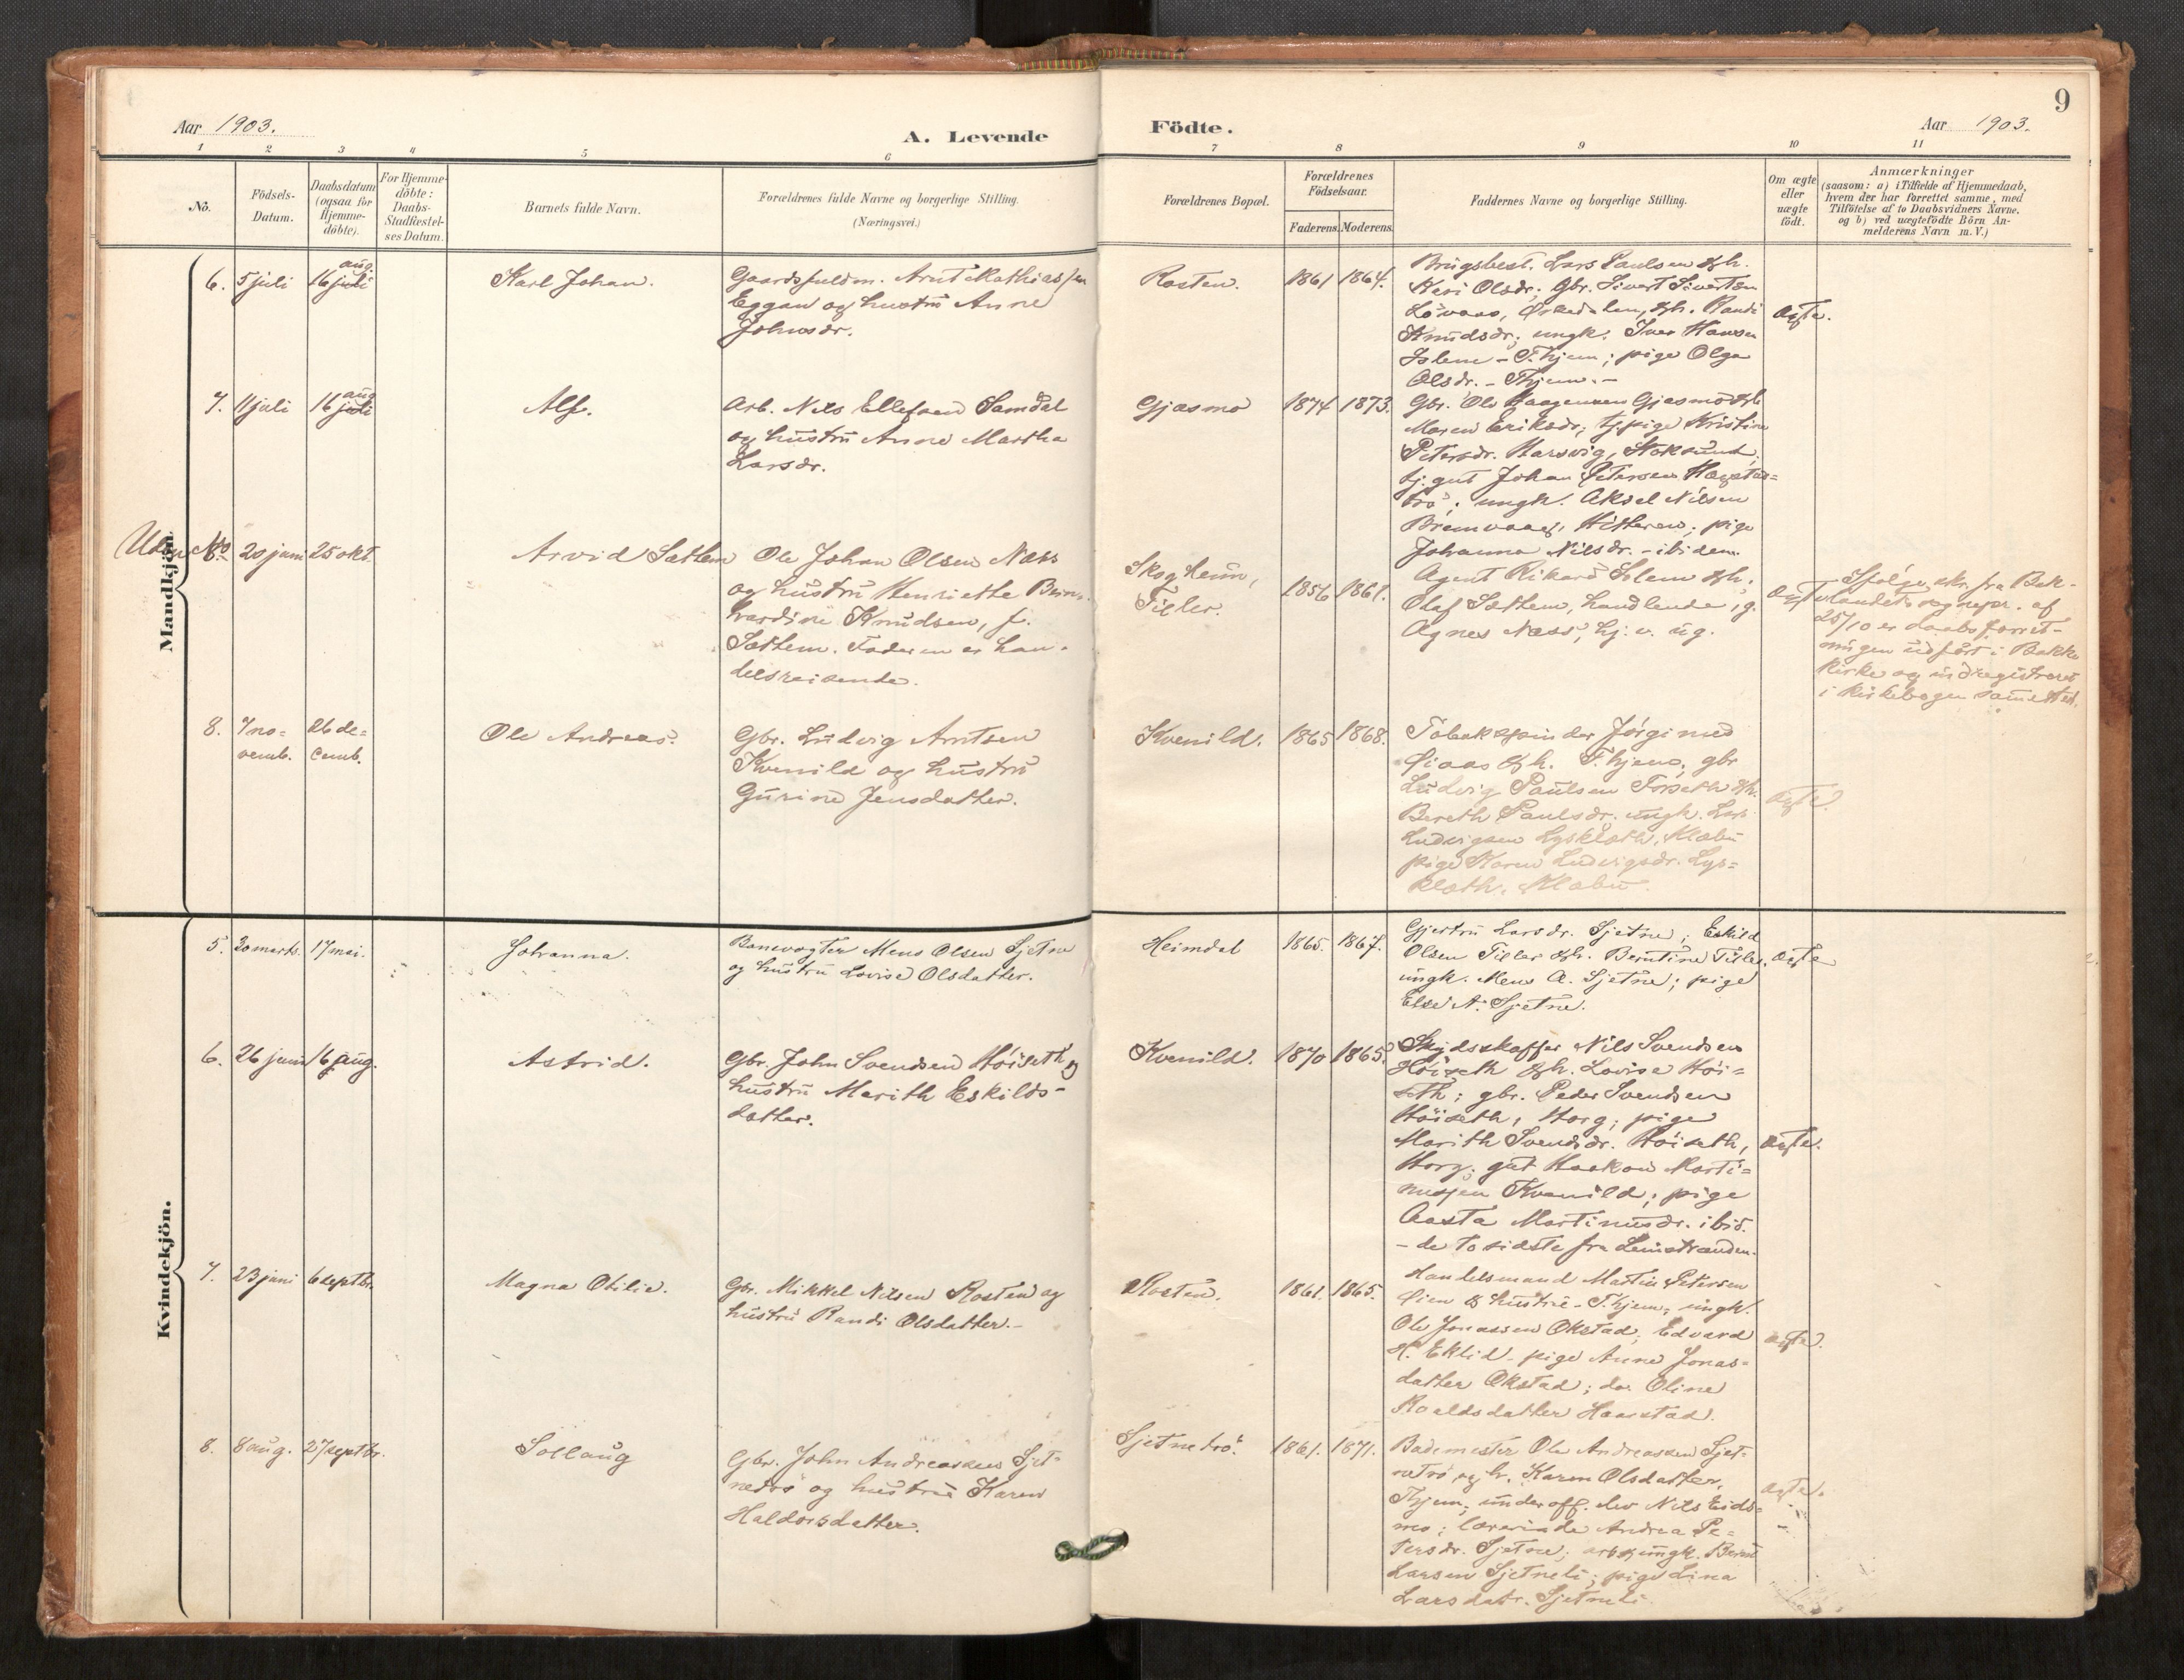 9
Aar 1903.
A. Levende
Födte.
Aar 1903.
1 2 3 4 5 6 7 8 9 10 11
No.
Födsels-
Datum.
Daabsdatum
(ogsaa for
Hjemme-
döbte).
For Hjemme-
döbte:
Daabs-
Stadfæstel-
ses Datum.
Barnets fulde Navn.
Forældrenes fulde Navne og borgerlige Stilling.
(Næringsvei.)
Forældrenes Bopæl.
Forældrenes
Födselsaar.
Faderens. Moderens.
Faddernes Navne og borgerlige Stilling.
Om ægte
eller
uægte
födt.
Anmærkninger
(saasom: a) i Tilfælde af Hjemmedaab,
hvem der har forrettet samme, med
Tilföielse af to Daabsvidners Navne,
og b) ved uægtefödte Börn An-
melderens Navn m. V.)
Mandkjön.
6. 5 juli 16 juli aug. Karl Johan.
Gaardsfuldm. Arnt Mathiassen
Eggan og hustru Anne
Johnsdr.
Rosten. 1861 1864.
Brugsbest. Lars Paulsen &h.
Kari Olsdr; Gbr. Sivert Sivertsen
Lövaas, Orkedalen, &h. Randi
Knudsdr; ungk. Iver Hansen
Solem - T.hjem; pige Olga
Olsdr. - Thjem. -
ægte.
7. 11 juli 16 juli aug Alf.
Arb. Nils Ellefsen Samdal
og hustru Anne Martha
Larsdr.
Gjasmo 1874 1873.
Gbr. Ole Haagensen Gjasmo &h
Maren Eriksdr; tj.pige Kristine
Petersdr. Harsvig, Stoksund,
tj. gut Johan Petersen
trö; ungk. Aksel Nilsen
Hitteren; pige
Johanna Nilsdr. - ibidem.
Uden No 20 juni 25 okt. Arvid Sæthem
Ole Johan Olsen Næss
og hustru Henriette Bern-
hardine Knudsen, f.
Sæthem. Faderen er han-
delsreisende.
Skogheim,
Tiller.
1856 1861.
Agent Rikard Solem &h.
Olaf Sæthem, handlende, g.
Agnes Næss, hj. v. ug.
ægte
Ifölge skr. fra Bak-
landets sognepr. af
25/10 er daabsforret-
ningen udfört i Bakke
Kirke og indregistreret
i Kirkebogen sammesteds.
8. 7 no-
vemb. 26 de-
cemb. Ole Andreas.
Gbr. Ludvig Arntsen
Kvenild og hustru
Gurine Jensdatter.
Kvenild. 1865 1868.
Tobakspinder Jörgi med
&h. T.hjem; gbr
Ludvig Paulsen Forseth &h.
Bereth Paulsdr. ungk. Lars
Ludvigsen Lysklæth, Klæbu
pige Karen Ludvigsdr. Lys-
klæth, Klæbu.
ægte.
Kvindekjön.
5. 30 marts. 17 mai. Johanna.
Banevogter Mens Olsen Sjetne
og hustru Lovise Olsdatter.
Heimdal 1865. 1867.
Gjertru Larsdr. Sjetne; Eskild
Olsen Tiller &h. Berntine Tiller.
ungk. Mens A. Sjetne; pige
Else A. Sjetne.
ægte
6. 26 juni 16 aug. Astrid.
Gbr. John Svendsen Höiseth og
hustru Marith Eskilds-
datter.
Kvenild. 1870 1865.
Skydsskaffer Nils Svendsen
Höiseth &h. Lovise Höi-
seth; gbr. Peder Svendsen
Höiseth, Horg; pige
Marith Svendsdr. Höiseth,
Horg; gut Haakon Marti-
nussen Kvenild; pige
Aasta Martinusdr. ibid.
- de to sidste fra Leinstranden.
ægte.
7. 23 juni 6 septbr. Magna Otilie.
Gbr. Mikkel Nilsen Rosten og
hustru Randi Olsdatter.-
Rosten. 1861. 1865.
Handelsmand Martin Petersen
Öien & hustru - T.hjem; ungk.
Ole Jonassen Okstad; Edvard
H. Eklid - pige Anne Jonas-
datter Okstad; do. Oline
Roaldsdatter Haarstad.
ægte.
8. 8 aug. 27 septbr. Sollaug
Gbr. John Andreassen Sjet-
netrö og hustru Karen
Haldorsdatter.
Sjetnetrö. 1861. 1871.
Bademester Ole Andreassen Sjet-
netrö og h. Karen Olsdatter,
Thjem; underoff. elev Nils Eids-
mo; lærerinde Andrea Pe-
tersdr. Sjetne; ungk. Bernt
Larsen Sjetneli; pige Lina
Larsdatr. Sjetneli.
ægte.